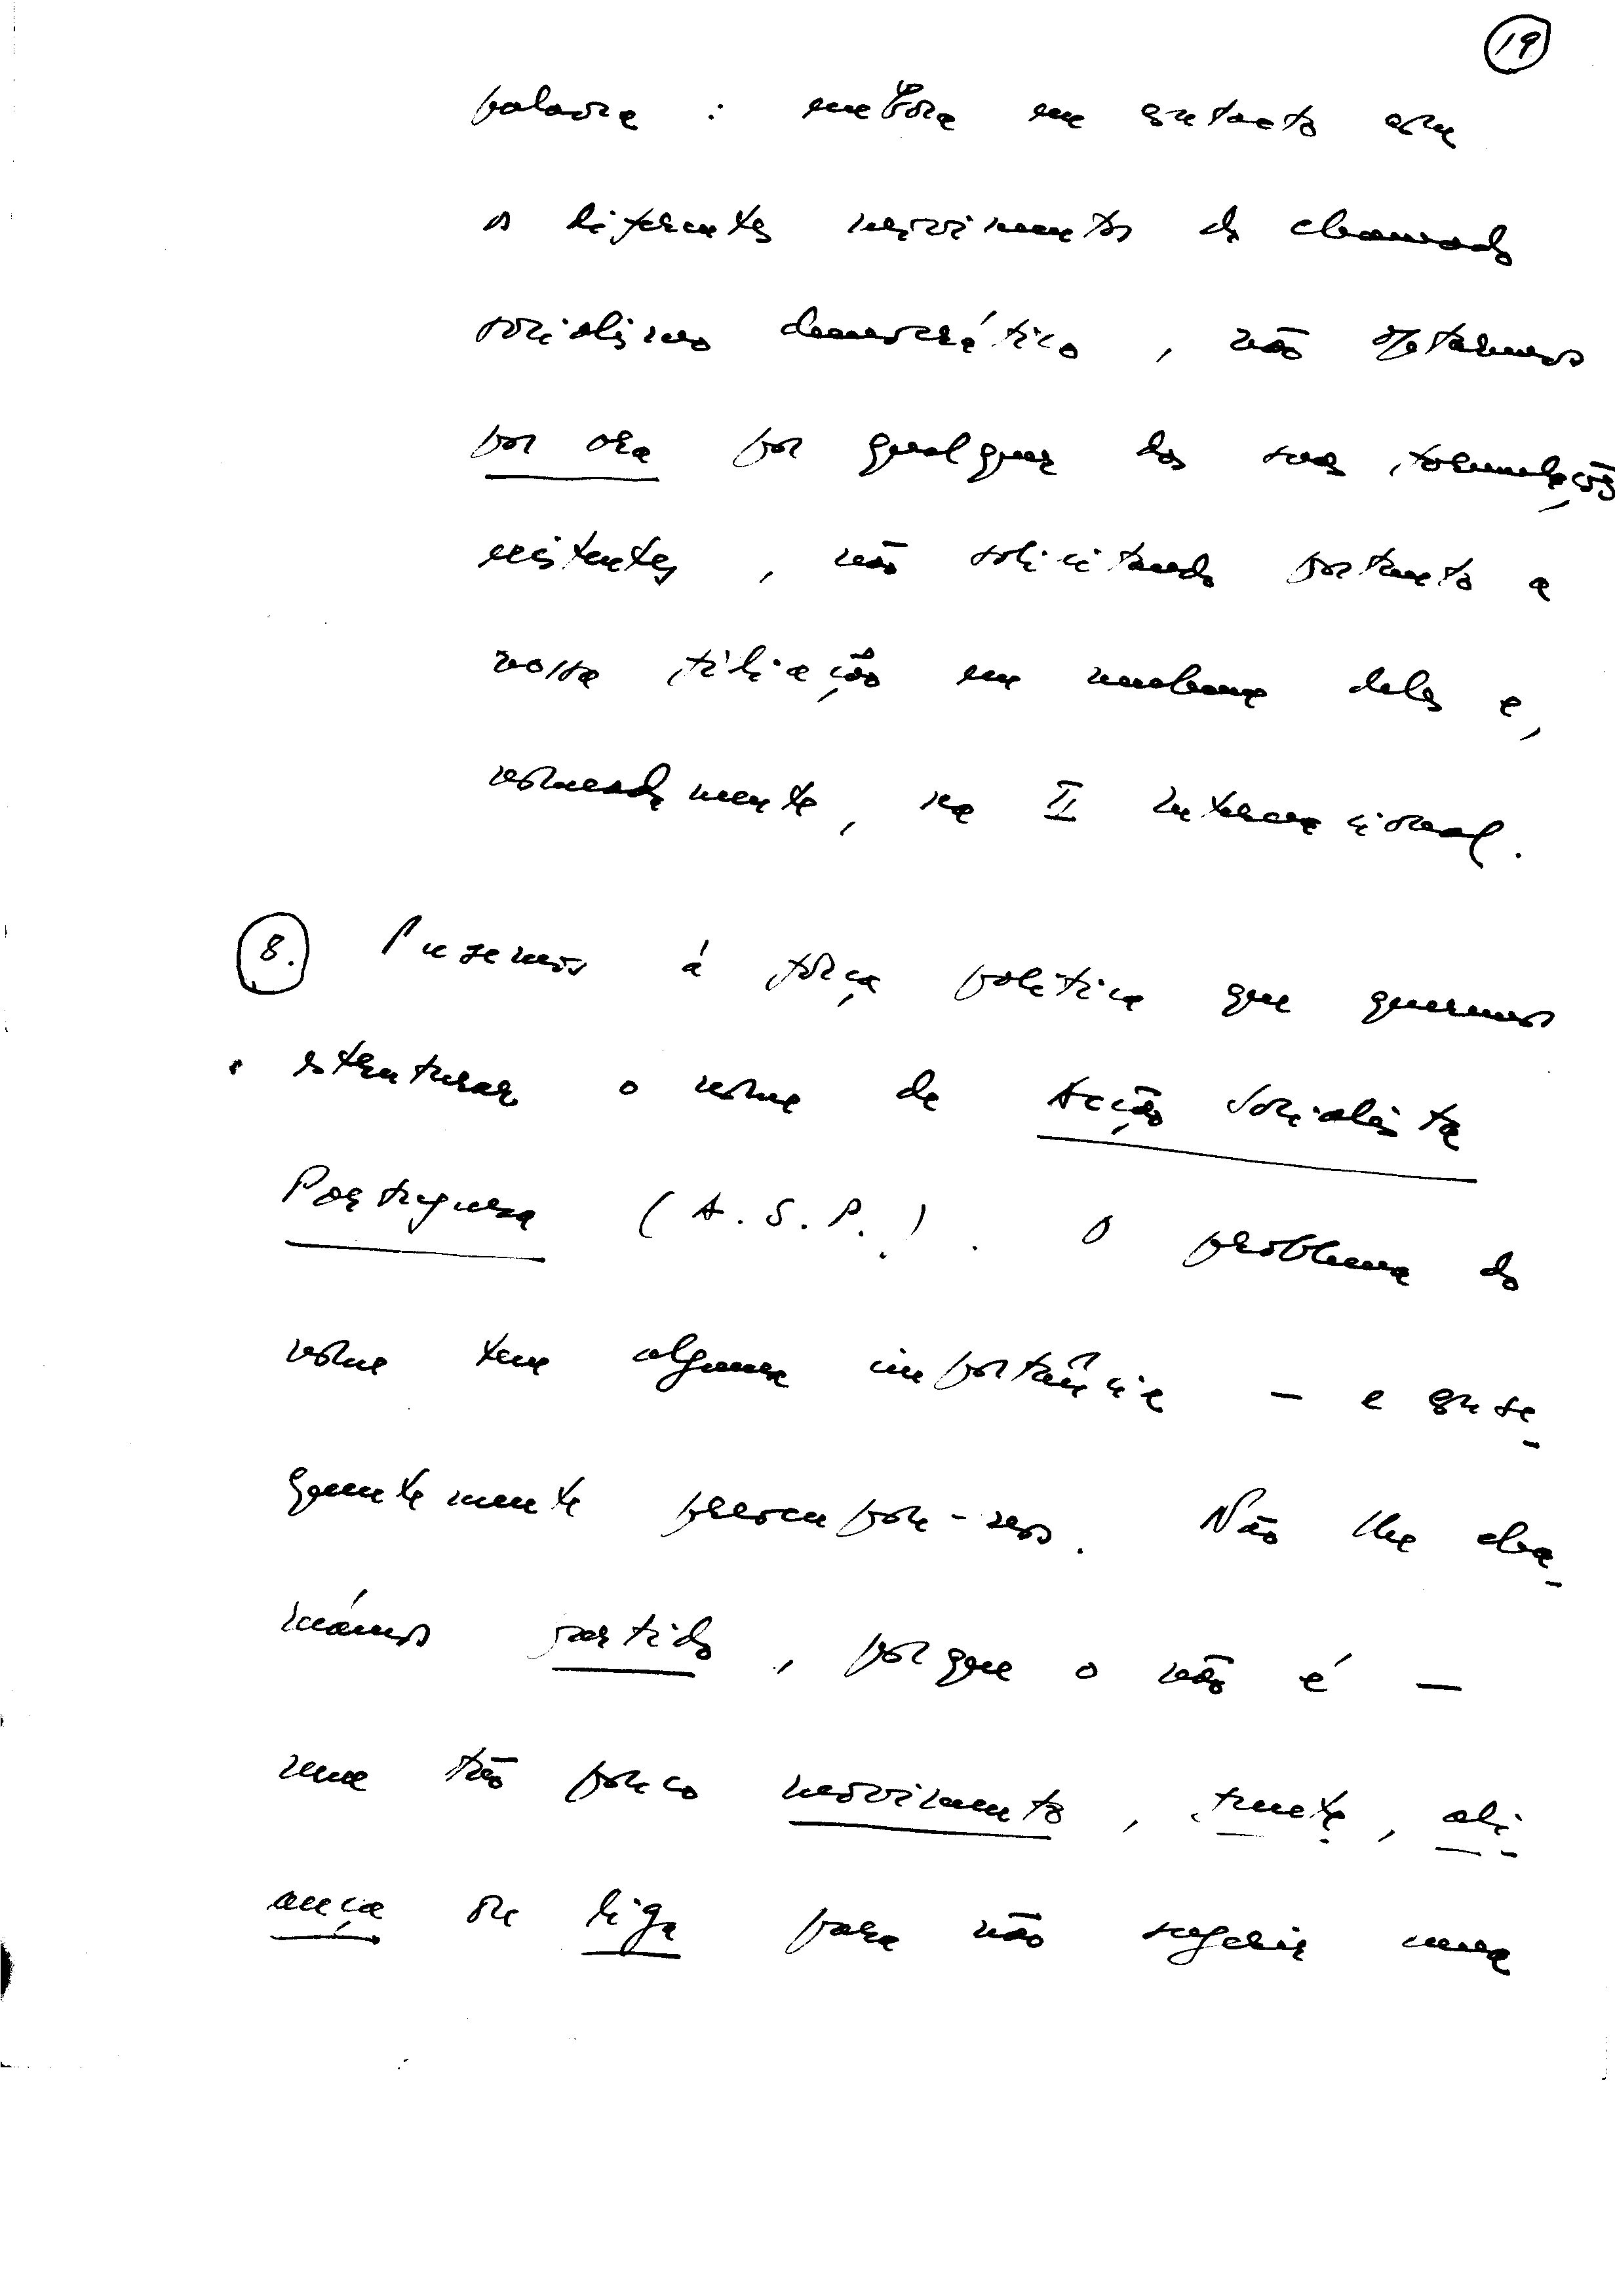 19
palavra : embora em contacto com
os diferentes movimentos do chamado
socialismo democrático, não optaremos
por ora por qualquer das suas formulações
existentes, não solicitando portanto a
nossa filiação em nenhuma delas e,
nomeadamente, na II Internacional.
8. Pusemos à força política que queremos
estruturar o nome de Acção Socialista
Portuguesa (A.S.P.). O problema do
nome tem alguma importância – e conse-
quentemente preocupou-nos. Não lhe cha-
mámos partido, porque o não é –
nem tão pouco movimento, frente, ali-
ança ou liga para não sugerir uma